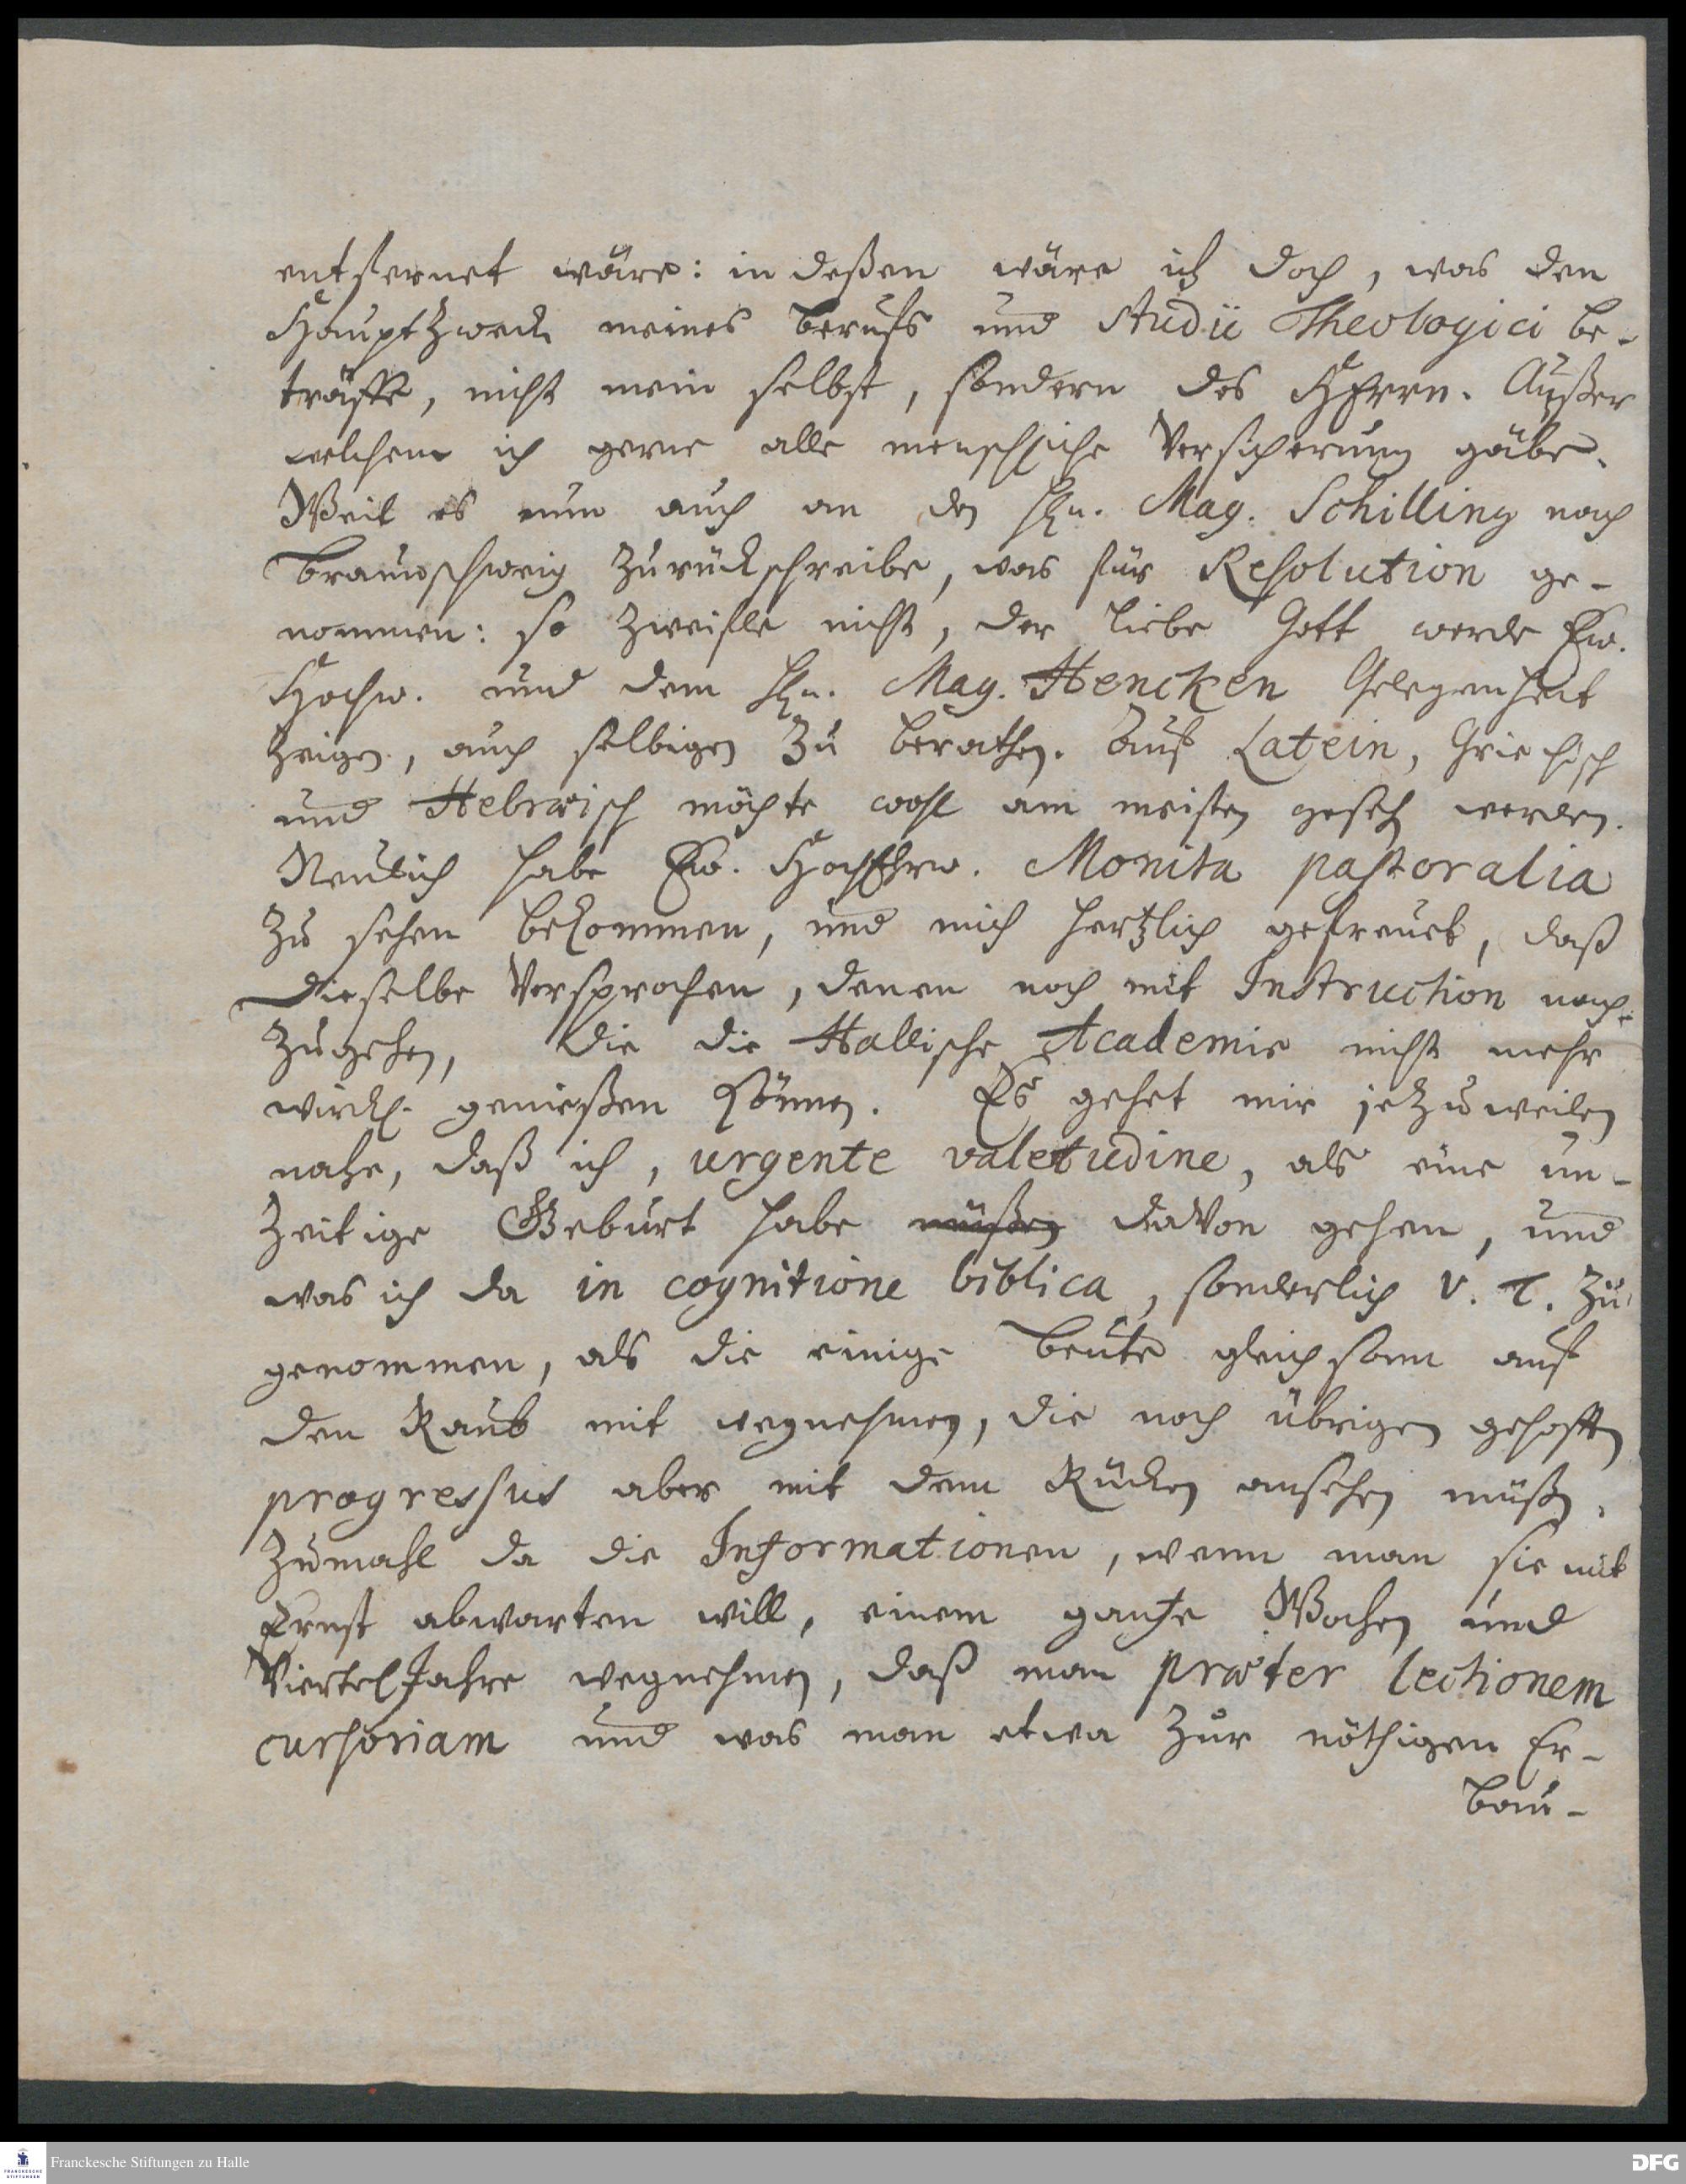 entfernet wäre: in deßen wäre ich doch, was den
Hauptzweck meines Berufs und Studii Theologici be-
träffe, nicht mein selbst, sondern des HErrn. Außer
welchem ich gerne alle menschliche Versicherung gäbe.
Weil es nun auch an den Hn. Mag. Schilling nach
Braunschweig zurückschreibe, was für Resolution ge-
nommen: so zweifle nicht, der liebe Gott werde Ew.
Hochw. und dem Hn. Mag. Hencken Gelegenheit
zeigen, auch selbigen zu berathen. Auf Latein, Griechisch
und Hebræisch möchte wohl am meisten geseh werden.
Neulich habe Ew. HochEhrw. Monita pastoralia
zu sehen bekommen, und mich hertzlich gefreuet, daß
dieselbe versprochen, denen noch mit Instruction nach-
zugehen, die die Hallische Academie nicht mehr
würckl. genießen können. Es gehet mir jezuweilen
nahe, daß ich, urgente valetudine, als eine un-
zeitige Geburt habe müßen davon gehen, und
was ich da in cognitione biblica, sonderlich V. T. zu
genommen, als die einige Beute gleichsam auf
den Raub mit wegnehmen, die noch übrigen gehofften
progressus aber mit dem Rücken ansehen müßen,
Zumahl da die Informationen, wenn man sie mit
Ernst abwarten will, einem gantze Wochen und
ViertelJahre wegnehmen, daß man præter lectionem
cursoriam und was man etwa zur nöthigen Er-
bau-
Franckesche Stiftungen zu Halle
FRANCKESCHE STIFTUNGEN
DFG